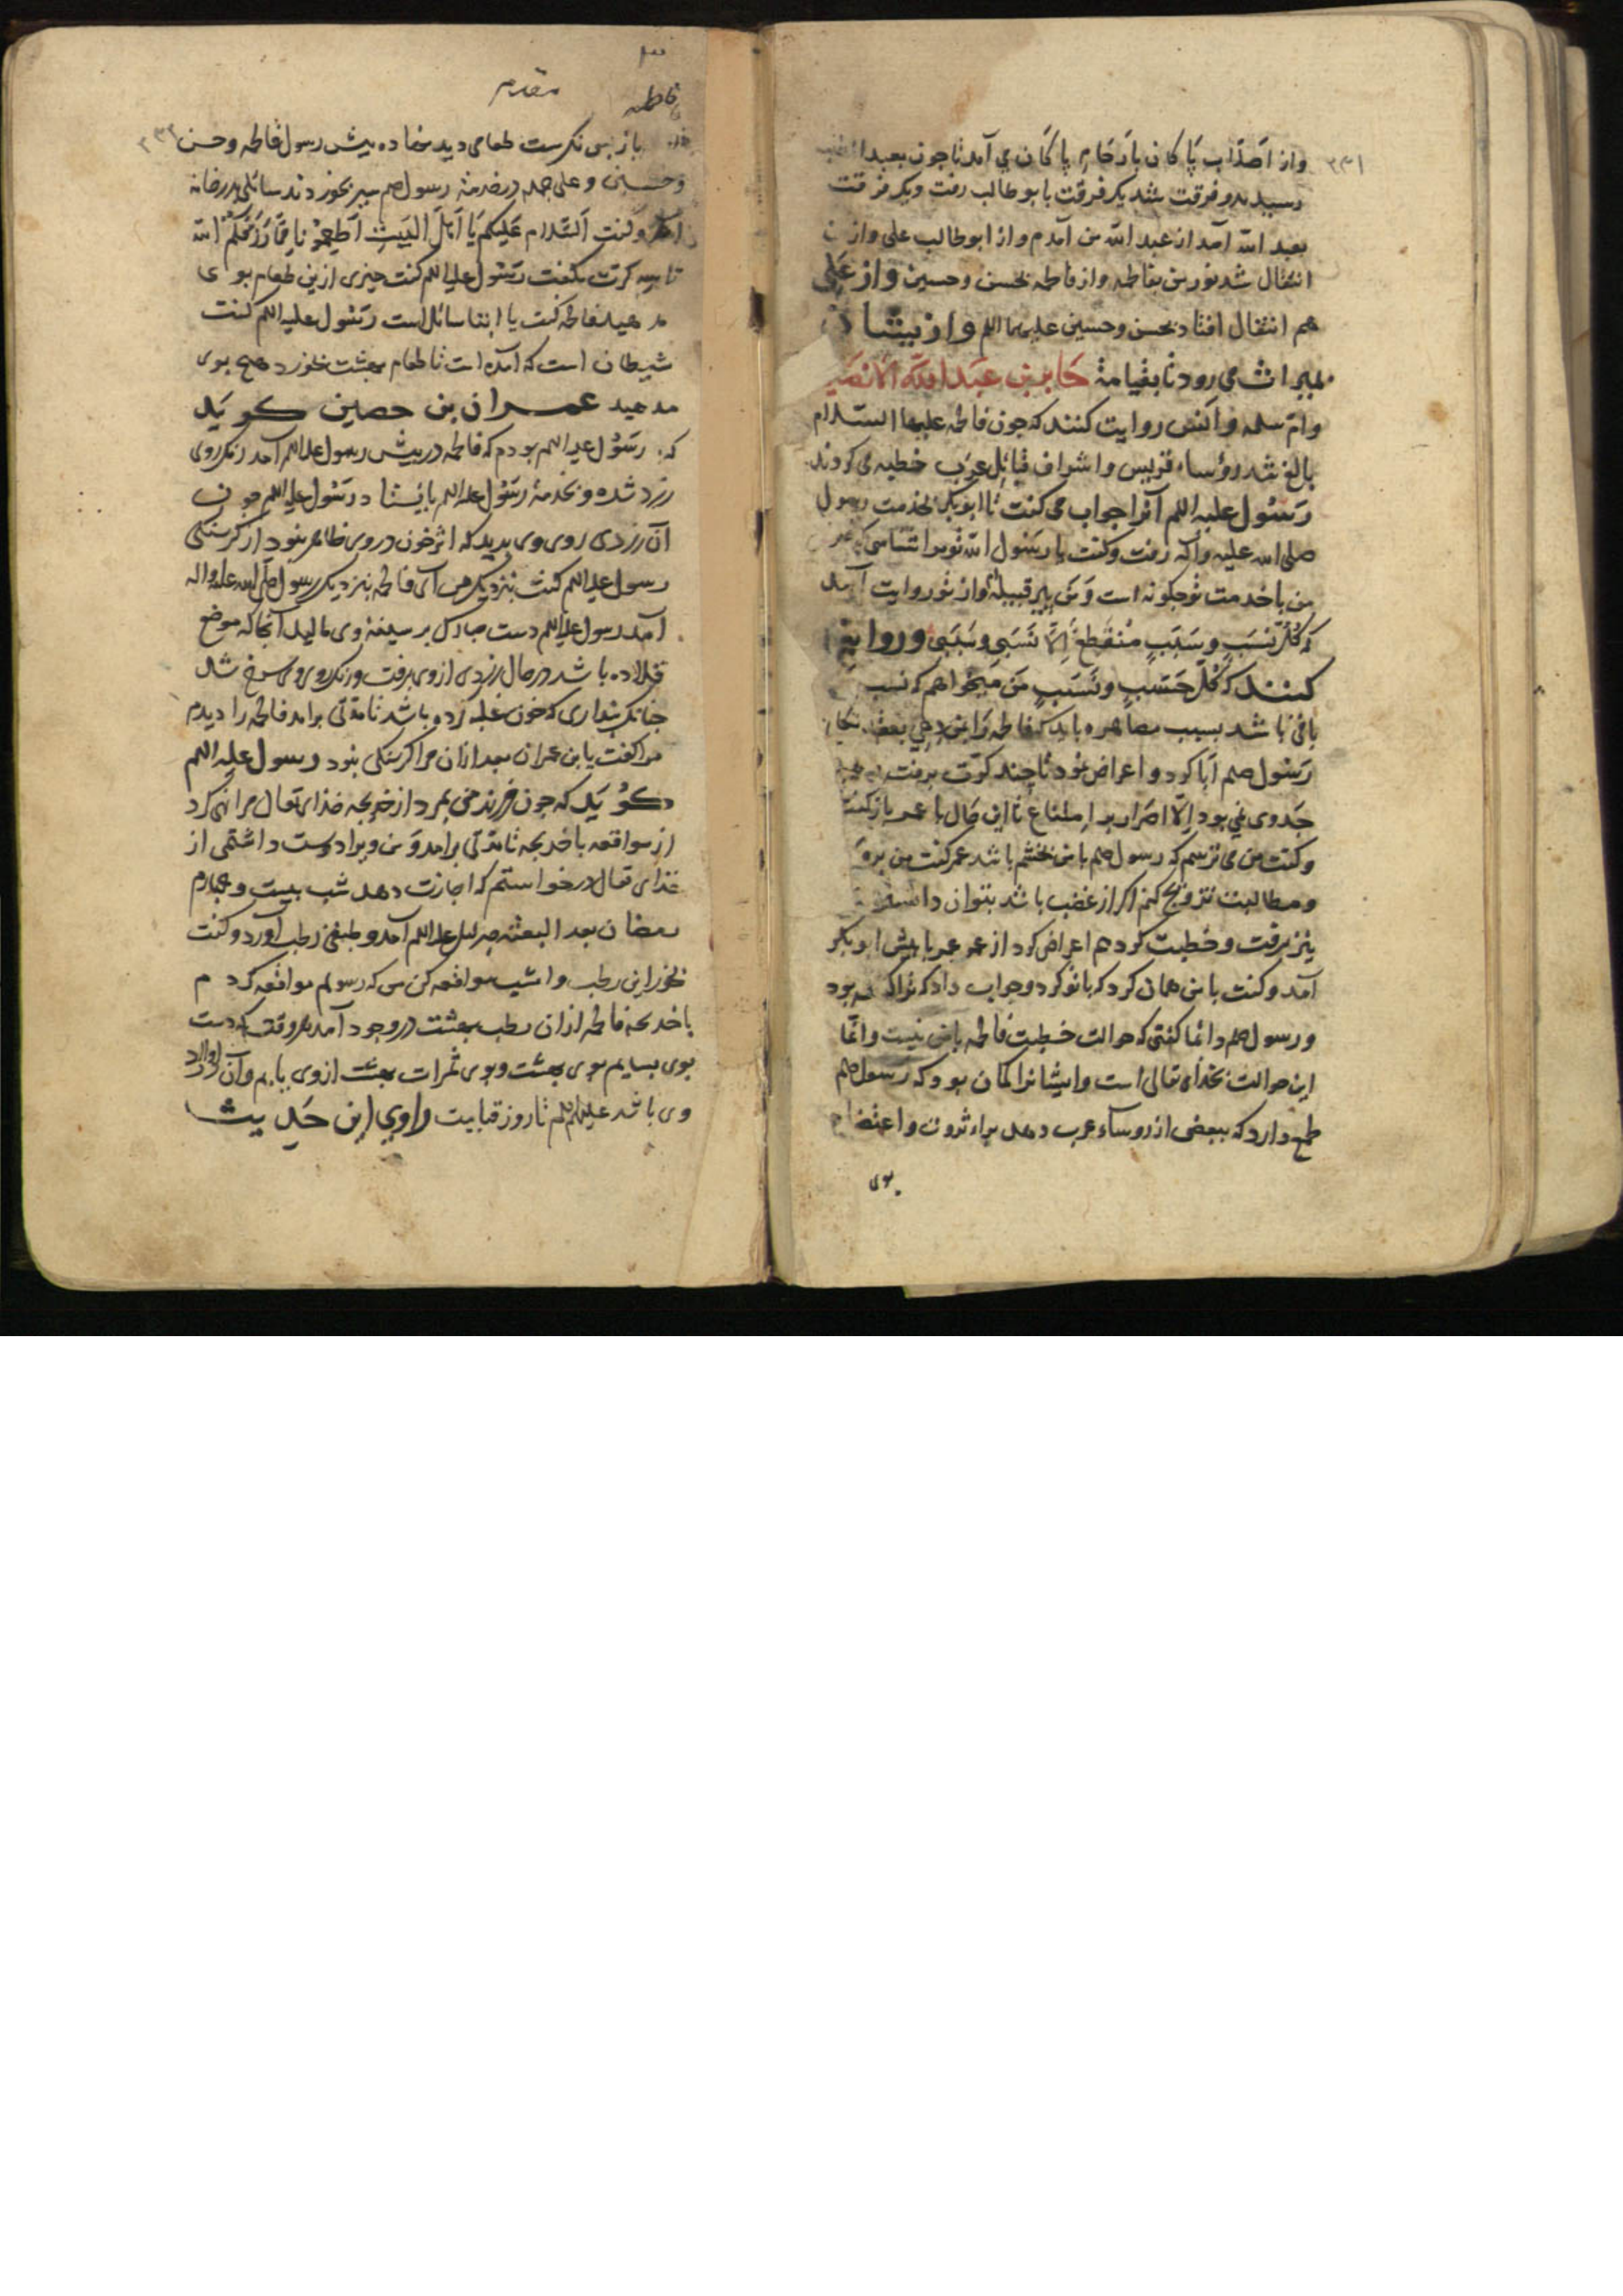 ۲۳۱
واز اصلاب پاکان بارحام پاکان می آمد تا چون بعبد
رسید بدو فرقت شد یک فرقت با بوطالب رفت ویک فرقت
بعبد الله آمد از عبد الله من آمدم واز ابوطالب علی واز
انتقال شد نور من بفاطمه واز فاطمه بحسن وحسین واز علی
هم انتقال افتاد بحسن وحسین علیهما اللم وازیشان
بمیراث می رود تا بقیامة جابر بن عبد الله الانصاری
وام سلمه وانس روایت کنند که چون فاطمه علیها السلام
بالغ شد رؤساء قریش واشراف قبائل عرب خطبه می کردند
رسول علیه اللم آنرا جواب می گفت تا ابوبکر بخدمت رسول
صلی الله علیه وآله رفت وگفت یا رسول الله تو میشناسی که
من با خدمت تو چگونه است ومن پیر قبیله واز تو روایت آمد
که کل نسب وسبب منقطع الا نسبی وسببی وروایة
کنند که کل حسب ونسب من میخواهم که نسب
باقی باشد بسبب مصاهره باید که فاطمه را بمن دهی بعقد نکاح
رسول صلم ابا کرد واعراض نمود تا چند کرت برفت
جدوی نمی بود الا اصرار بر امتناع تا این حال با عمر بازگفت
وگفت من می ترسم که رسول صلم با من بخشم باشد عمر گفت من بروم
ومطالبت تزویج کنم اگر از غضب باشد بتوان دانست
نیز برفت وخطبت کرد هم اعراض کرد از عمر عمر با پیش ابوبکر
آمد وگفت با من همان کرد که با تو کرد وجواب داد که ترا بود
ورسول صلم دائما گفتی که حوالت خطبت فاطمه بامن نیست وانما
این حوالت بخدای تعالی است وایشانرا گمان بود که رسول صلم
طمع دارد که ببعضی از روساء عرب دهد براء ثروت واعتضاد
بوی
فاطمه
مقدم
۲۳۲
باز پس نگرست طعامی دید نهاده پیش رسول فاطمه وحسن
وحسین وعلی جمله در خدمة رسول صلم سیر بخوردند سائلی بدر خانه
آمد وگفت السلام علیکم یا اهل البیت اطعمونا مما رزقکم الله
تا سه کرت بگفت رسول علیه اللم گفت چیزی ازین طعام بوی
مدهید فاطمه گفت یا ابتا سائل است رسول علیه اللم گفت
شیطان است که آمده است تا طعام بهشت خورد هیچ بوی
مدهید عمران بن حصین گوید
که رسول علیه اللم بودم که فاطمه در پیش رسول علیه اللم آمد رنگ روی
زرد شده وبخدمة رسول علیه اللم بایستاد رسول علیه اللم چون
آن زردی روی وی بدید که اثر خون در وی ظاهر نبود از گرسنگی
رسول علیه اللم گفت بنزدیک من آی فاطمه بنزدیک رسول صلی الله علیه واله
آمد رسول علیه اللم دست مبارک بر سینهٔ وی مالید آنجا که موضع
قلاده باشد در حال زردی از وی برفت ورنگ روی وی سرخ شد
چنانک پنداری که خون غلبه کرده باشد تا مدتی برامد فاطمه را دیدم
مرا گفت یا بن عمران بعد ازان مرا گرسنگی نبود رسول علیه اللم
گوید که چون فرزند من بمرد از خدیجه خدای تعالی مرا نهی کرد
از مواقعه با خدیجه تا مدتی برامد ومن ویرا دوست داشتمی از
خدای تعالی درخواستم که اجازت دهد شب بیست وچهارم
رمضان بعد البعثه جبرئیل علیه اللم آمد وطبقی رطب آورد وگفت
بخور این رطب وامشب مواقعه کن من که رسولم مواقعه کردم
با خدیجه فاطمه ازان رطب بهشت در وجود آمد هر وقت که دست
بوی بسایم بوی بهشت وبوی ثمرات بهشت از وی یابم وآن اولاد
وی باشد علیهم اللم تا روز قیامت راوی این حدیث